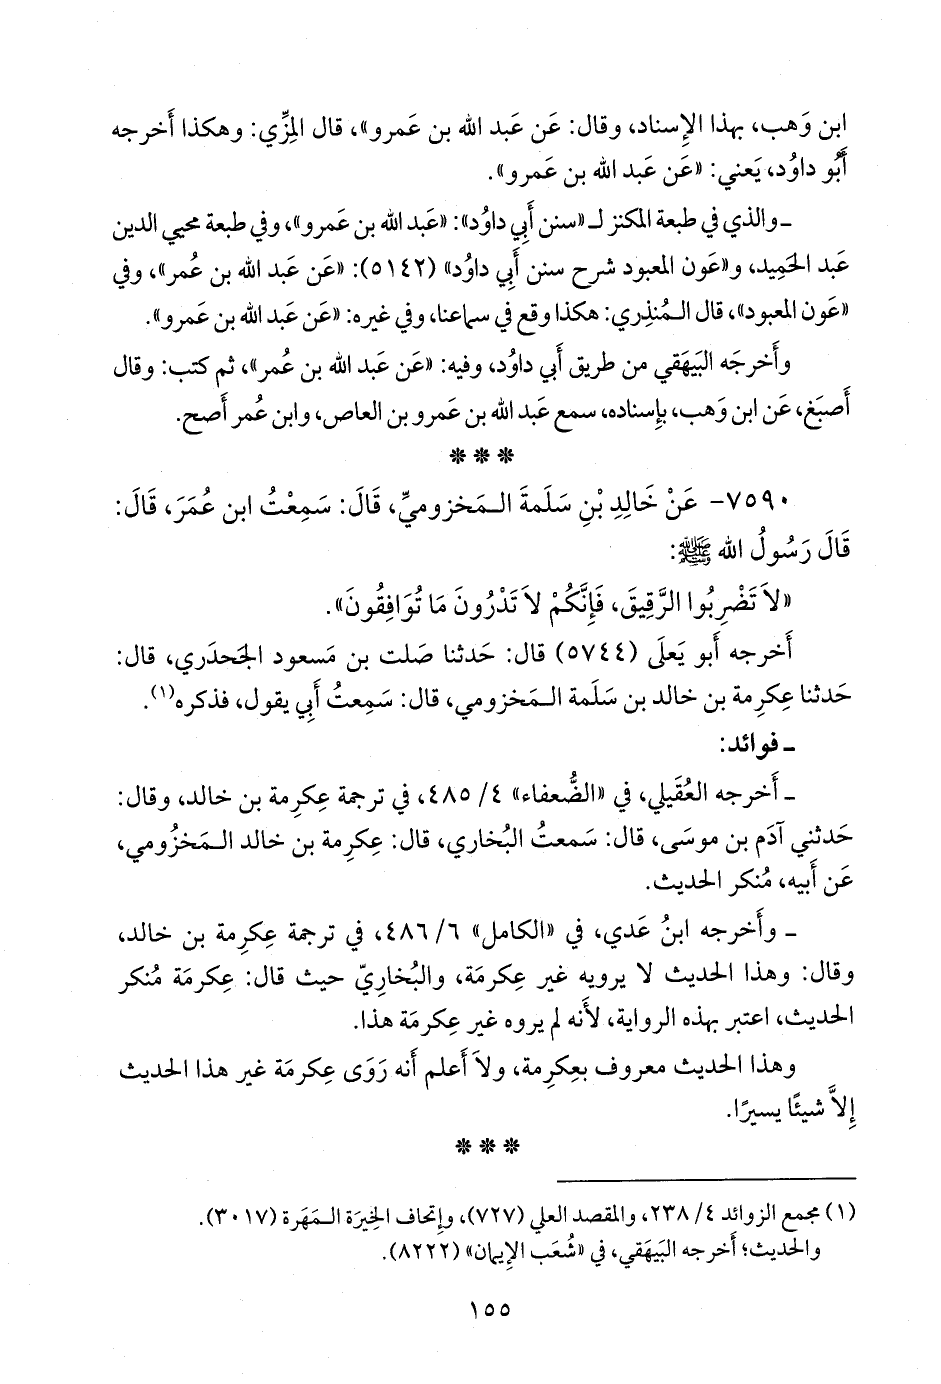 ابن وَهب، بهذا الإِسناد، وقال: عَن عَبد الله بن عَمرو»، قال المِزِّي: وهكذا أَخرجه
أَبُو داوُد، يَعني: «عَن عَبد الله بن عَمرو».
ـ والذي في طبعة المكنز لـ «سنن أَبي داوُد»: «عَبد الله بن عَمرو»، وفي طبعة محيي الدين
عَبد الحَمِيد، و«عَون المعبود شرح سنن أَبي داوُد» (٥١٤٢): «عَن عَبد الله بن عُمر»، وفي
«عَون المعبود»، قال الـمُنذِري: هكذا وقع في سماعنا، وفي غيره: «عَن عَبد الله بن عَمرو».
وأَخرجَه البَيهَقي من طريق أَبي داوُد، وفيه: «عَن عَبد الله بن عُمر»، ثم كتب: وقال
أَصبَغ، عَن ابن وَهب، بإِسناده، سمع عَبد الله بن عَمرو بن العاص، وابن عُمر أَصح.
* * *
٧٥٩٠- عَنْ خَالِدِ بْنِ سَلَمةَ الـمَخزوميِّ، قَالَ: سَمِعْتُ ابن عُمَرَ، قَالَ:
قَالَ رَسُولُ الله ﷺ:
«لاَ تَضْرِبُوا الرَّقِيقَ، فَإِنَّكُمْ لاَ تَدْرُونَ مَا تُوَافِقُونَ».
أَخرجه أَبو يَعلَى (٥٧٤٤) قال: حَدثنا صَلت بن مَسعود الجَحدَري، قال:
حَدثنا عِكرِمة بن خالد بن سَلَمة الـمَخزومي، قال: سَمِعتُ أَبي يقول، فذكره(١).
ـ فوائد:
ـ أَخرجه العُقَيلي، في «الضُّعفاء» ٤/ ٤٨٥، في ترجمة عِكرِمة بن خالد، وقال:
حَدثني آدَم بن موسَى، قال: سَمعتُ البُخاري، قال: عِكرِمة بن خالد الـمَخزُومي،
عَن أَبيه، مُنكر الحَديث.
ـ وأَخرجه ابنُ عَدي، في «الكامل» ٦/ ٤٨٦، في ترجمة عِكرِمة بن خالد،
وقال: وهذا الحَديث لا يرويه غير عِكرمَة، والبُخاريّ حيث قال: عِكرمَة مُنكر
الحَديث، اعتبر بهذه الرواية، لأَنه لم يروه غير عِكرمَة هذا.
وهذا الحَديث معروف بعِكرِمة، ولاَ أَعلم أَنه رَوَى عِكرمَة غير هذا الحَديث
إِلاَّ شيئًا يسيرًا.
* * *
(١) مجمع الزوائد ٤/ ٢٣٨، والمقصد العلي (٧٢٧)، وإِتحاف الخِيرَة الـمَهَرة (٣٠١٧).
والحَديث؛ أَخرجه البَيهَقي، في «شُعَب الإِيمان» (٨٢٢٢).
١٥٥